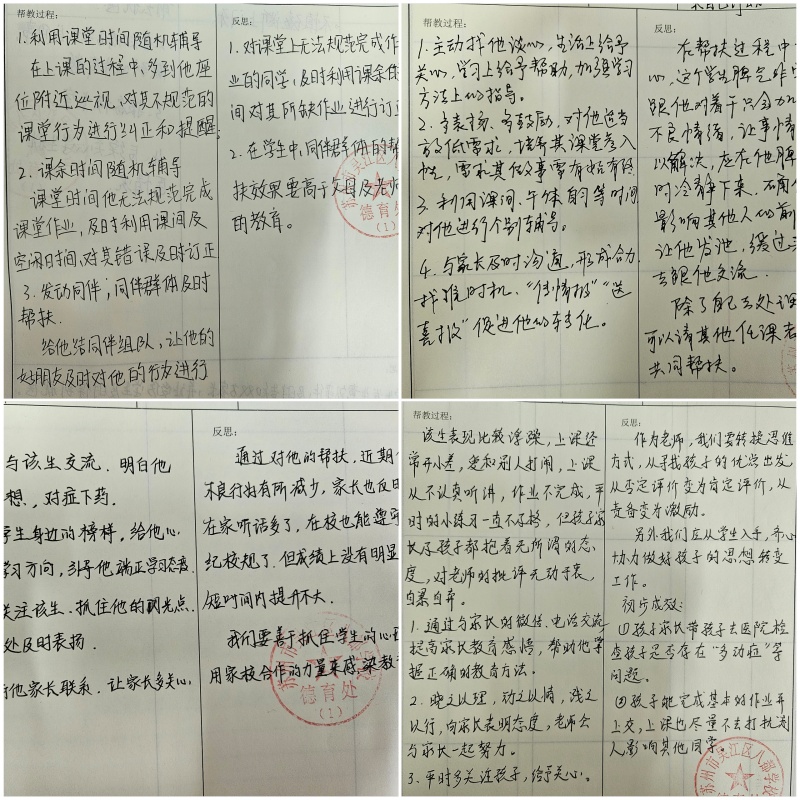 帮教过程：
1.利用课堂时间随机辅导
在上课的过程中，多到他座
位附近巡视，对其不规范的
课堂行为进行纠正和提醒；
2.课余时间随机辅导
课堂时间他无法规范完成
课堂作业，及时利用课间及
空闲时间，对其错误及时订正
3.发动同伴，同伴群体及时
帮扶.
给他结同伴组队，让他的
好朋友及时对他的行为进行
反思：
1.对课堂上无法规范完成作
业的同学，及时利用课余休
间对其所缺作业进行订正
2.在学生中，同伴群体的帮
扶效果要高于父母及老师
的教育。
德育处
（1）
帮教过程：
1.主动找他谈心，生活上给予
关心，学习上给予帮助，加强学习
方法上的指导。
2.多表扬、多鼓励，对他适当
放低需求，培养其课堂参入
性，需求其做事需有始有终
3.利用课间、午休自习等时间
对他进行个别辅导。
4.与家长及时沟通，形成合力
找准时机、“传情报”“送
喜报”促进他的转化。
反思：
在帮扶过程中
心，这个学生脾气非
跟他对着干只会加
不良情绪，让事情
以解决，应在他脾
时冷静下来，不
影响其他人的前
让他发泄，缓过
去跟他交流.
除了自己去处理
可以请其他任课老
共同帮扶。
与该生交流.明白他
想，对症下药.
学生身边的榜样，给他心
学习方向，引导他端正学习态度
关注该生.抓住他的闪光点
处及时表扬
他家长联系.让家长多关心
反思：
通过对他的帮扶，近期
不良行为有所减少，家长也反
在家听话多了，在校也能遵守
纪校规了.但成绩上没有明显
短时间内提升不大.
我们要善于抓住学生的心理
用家校合作的力量来感染教
德育处
（1）
帮教过程：
该生表现比较浮躁，上课还
常开小差，爱和别人打闹，上课
从不认真听讲，作业不完成，平
时的小练习一直不及格，但孩子家
长及孩子都抱着无所谓的态
度，对老师的批评无动于衷，
自暴自弃。
1.通过与家长的微信、电话交流
提高家长教育感悟，帮助他掌
握正确的教育方法。
2.晓之以理，动之以情，浅之
以行，向家长表明态度，老师会
与家长一起努力。
3.平时多关注孩子，给予关心。
反思：
作为老师，我们要转换思维
方式，从寻找孩子的优点出发
从否定评价变为肯定评价，从
责备变为激励。
另外我们应从学生入手，齐心
协力做好孩子的思想转变
工作.
初步成效：
①孩子家长带孩子去医院检
查孩子是否存在“多动症”等
问题。
②孩子能完成基本的作业并
上交，上课也尽量不去打扰别
人影响其他同学。
苏州市吴江区八都学校